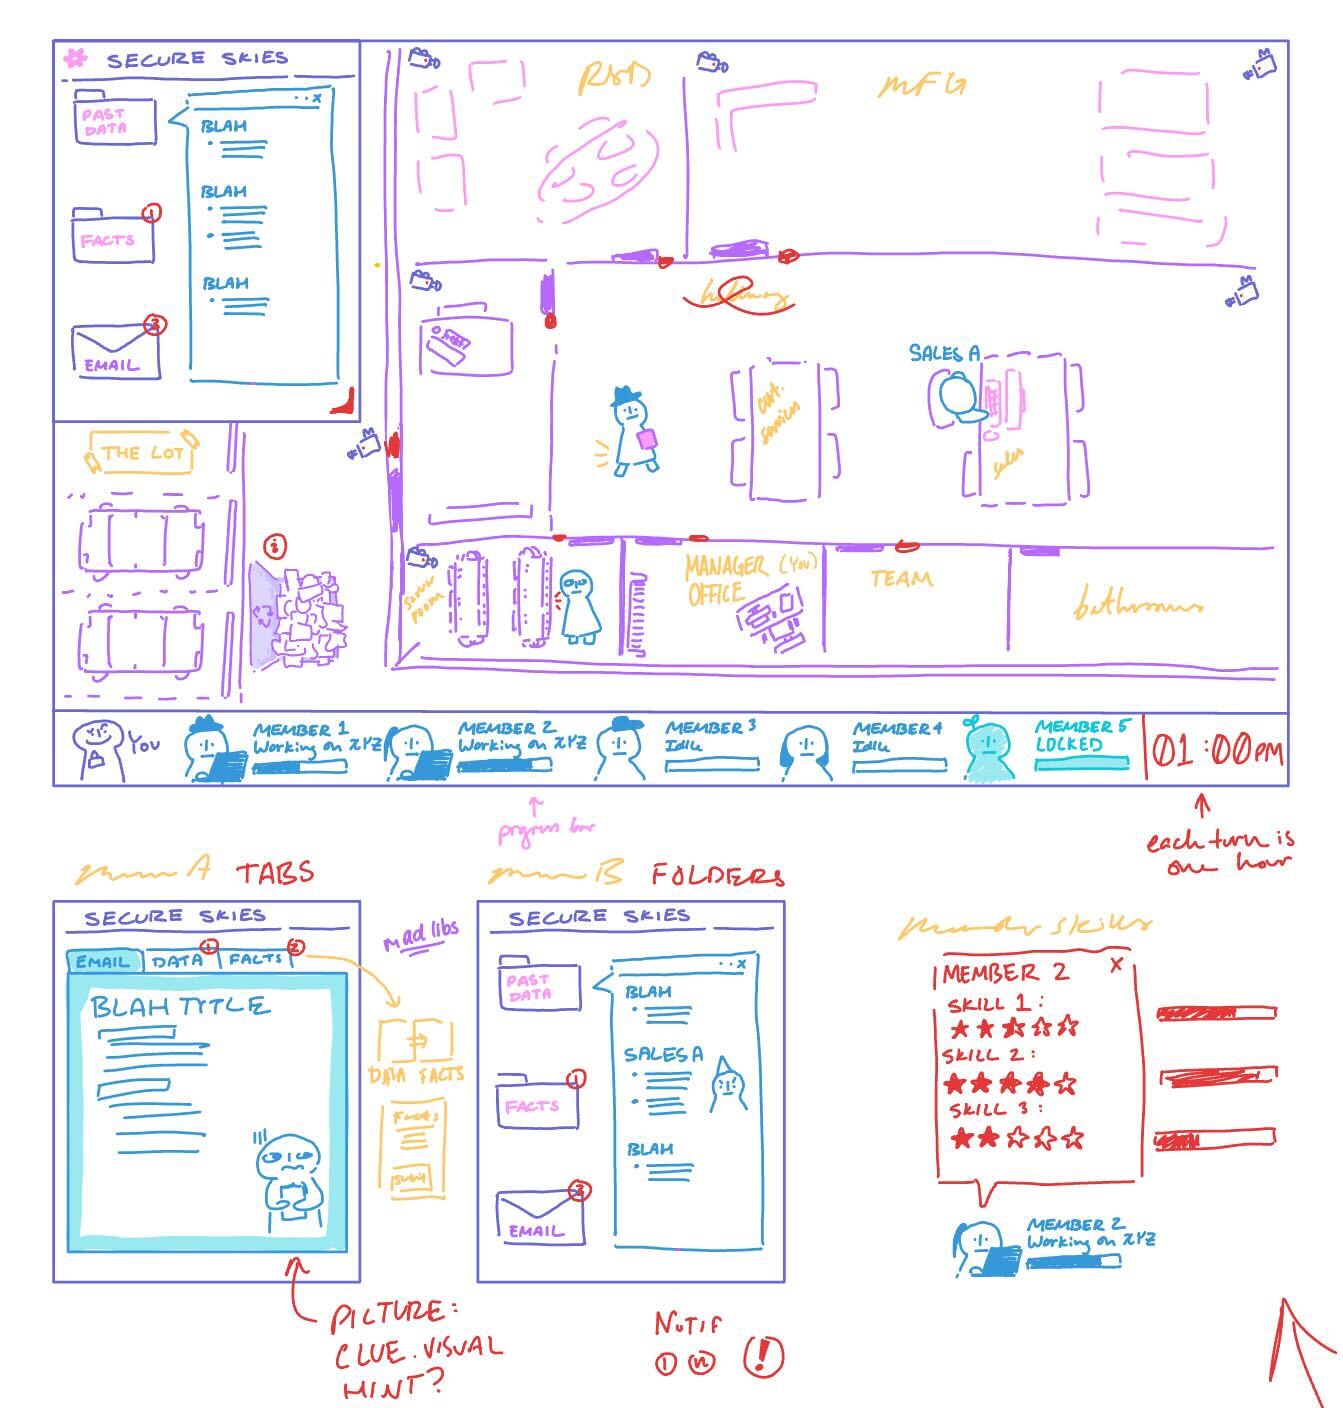 SECURE SKIES
PAST
DATA
BLAH
BLAH
BLAH
x
1
FACTS
3
EMAIL
R&D
MFG
hallway
SALES A
cust.
services
sales
THE LOT
i
server
room
MANAGER (YOU)
OFFICE
TEAM
bathrooms
YOU
MEMBER 1
Working on XYZ
MEMBER 2
Working on XYZ
MEMBER 3
Idle
MEMBER 4
Idle
MEMBER 5
LOCKED
01:00PM
progress bar
each turn is
one hour
A TABS
SECURE SKIES
EMAIL
DATA
1
FACTS
2
BLAH TITLE
mad libs
DATA FACTS
Facts
PICTURE:
CLUE. VISUAL
HINT?
B FOLDERS
SECURE SKIES
PAST
DATA
x
BLAH
SALES A
BLAH
1
FACTS
3
EMAIL
NOTIF
1 n !
skills
MEMBER 2 X
SKILL 1:
SKILL 2:
SKILL 3:
MEMBER 2
Working on XYZ